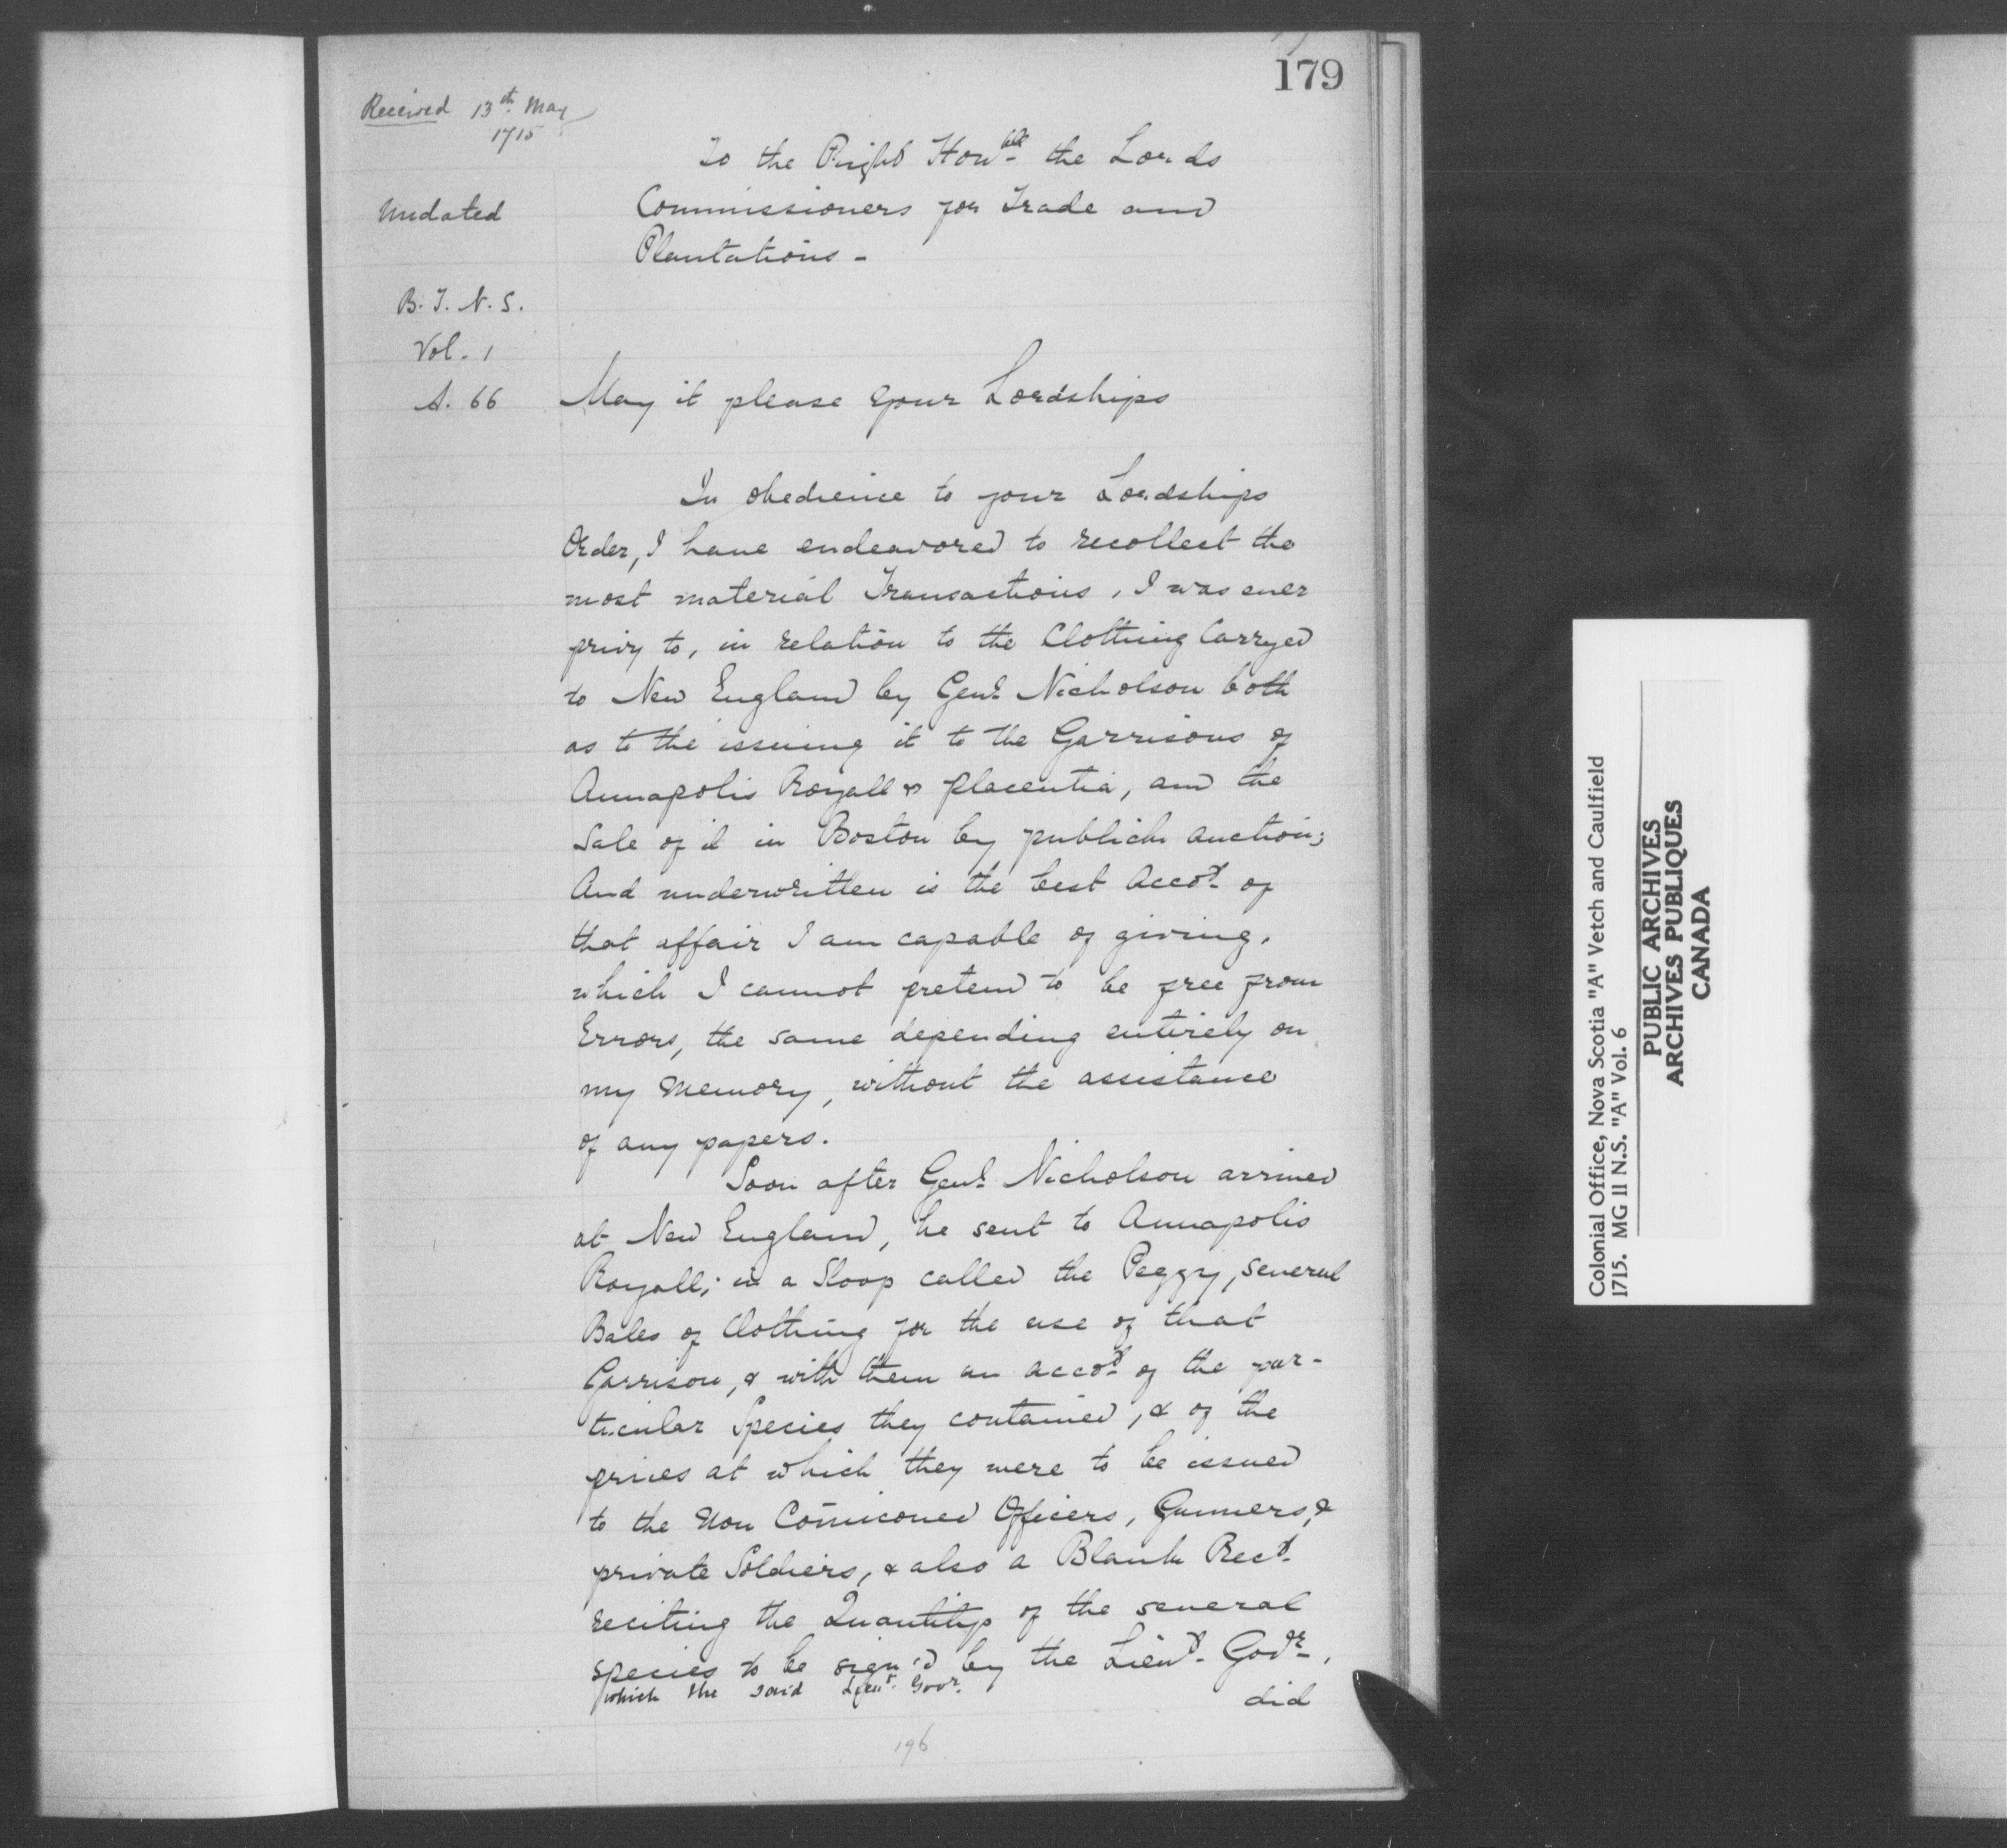 179
Received 13th May
1715
To the Right Honble the Lords
Undated
Commissioners for Trade and
Plantations -
B. T. N. S.
Vol. 1
A. 66
May it please your Lordships
In obedience to your Lordships
Order, I have endeavored to recollect the
most material Transactions, I was ever
privy to, in relation to the Clothing Carryed
to New England by Genl Nicholson both
as to the issuing it to the Garrisons of
Annapolis Royall & placentia, and the
Sale of it in Boston by publick auction;
And underwritten is the best Accot of
that affair I am capable of giving,
which I cannot pretend to be free from
Errors, the same depending entirely on
my Memory, without the assistance
of any papers.
Soon after Genl Nicholson arrived
at New England, he sent to Annapolis
Royall; in a Sloop called the Peggy, several
Bales of Clothing for the use of that
Garrison, & with them an accot of the par-
ticular Species they contained, & of the
prices at which they were to be issued
to the Non Comiconed Officers, Gunners, &
private Soldiers, & also a Blank Rect
reciting the Quantitys of the several
species to be sign'd by the Lieut Govr,
which the said Lieut. Govr.
did
196
Colonial Office, Nova Scotia "A" Vetch and Caulfield
1715. MG 11 N.S. "A" Vol. 6
PUBLIC ARCHIVES
ARCHIVES PUBLIQUES
CANADA